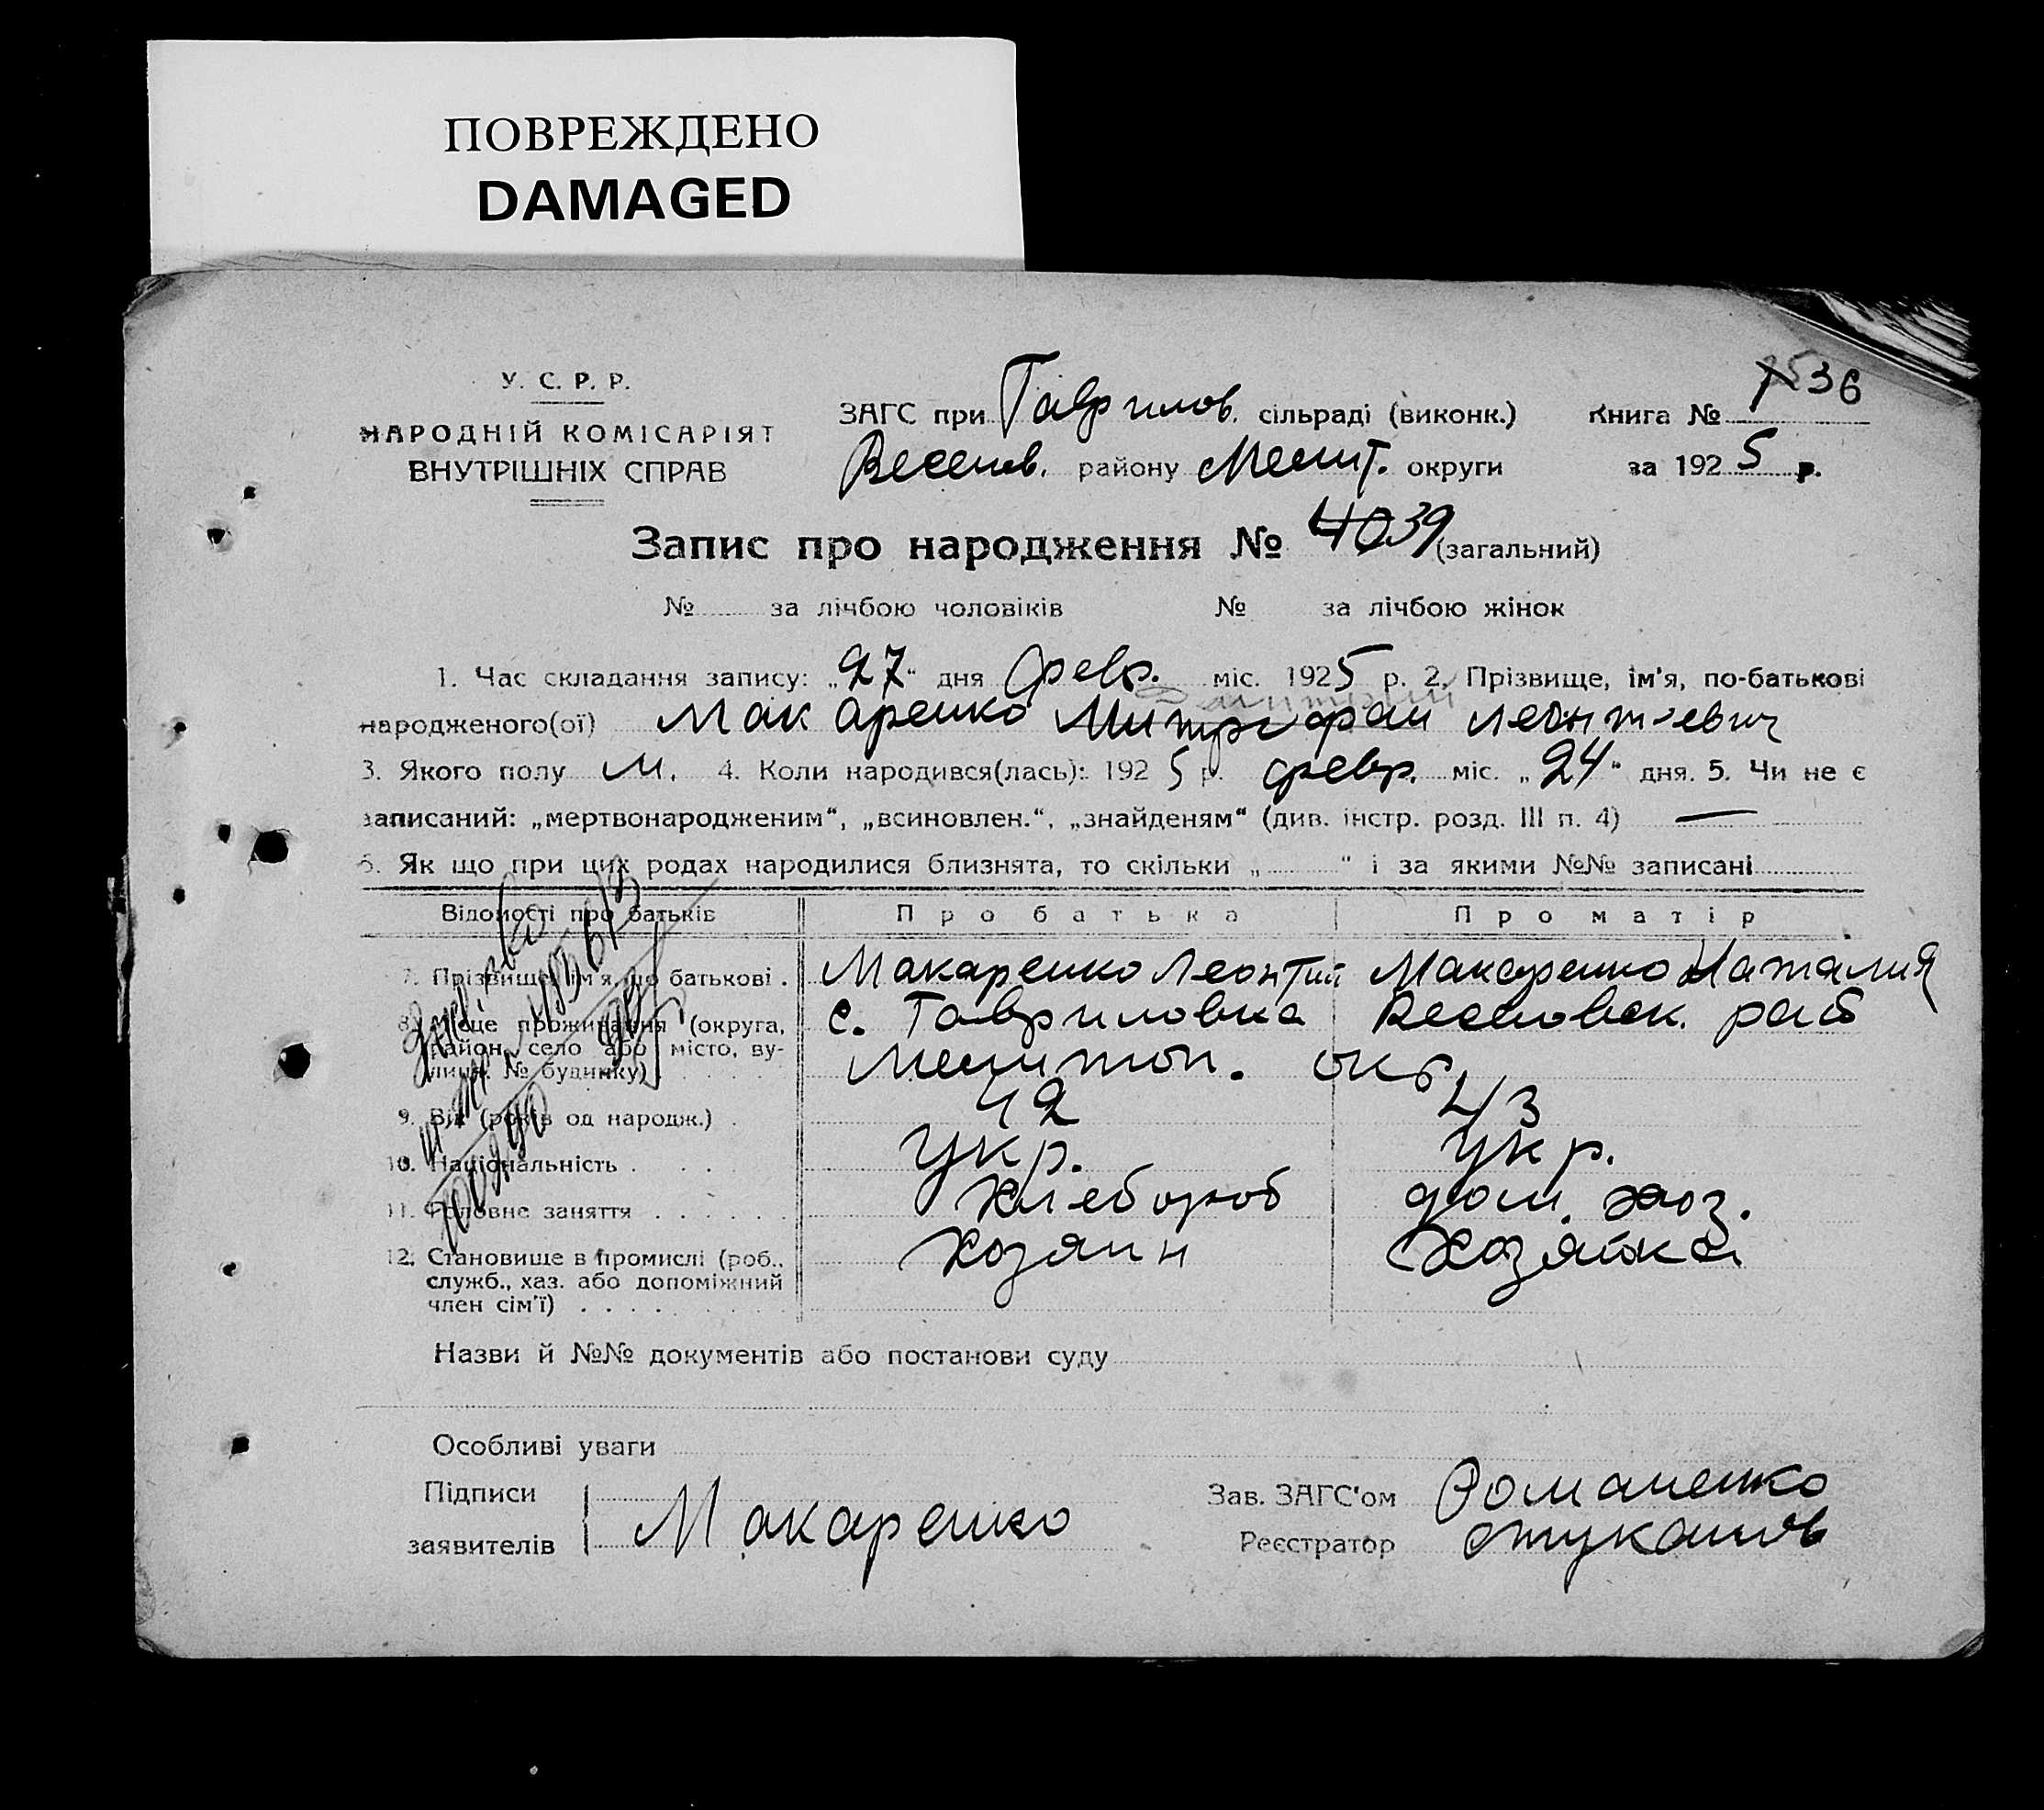 ПОВРЕЖДЕНО
DAMAGED
36
У. С. Р. Р.
НАРОДНІЙ КОМІСАРІЯТ
ВНУТРІШНІХ СПРАВ
ЗАГС при Гаврилов. сільраді (виконк.) Книга № 1
Веселов. району Мелит. округи за 1925 р.
Запис про народження № 40 39 (загальний)
№ за лічбою чоловіків № за лічбою жінок
1. Час складання запису: „27“ дня февр. міс. 1925 р. 2. Прізвище, ім'я, по-батькові
Дмитрий
народженого(ої) Макаренко Митрофан Леонтьевич
3. Якого полу м. 4. Коли народився(лась): 1925 р. февр. міс. „24“ дня. 5. Чи не є
записаний: „мертвонародженим“, „всиновлен.“, „знайденям“ (див. інстр. розд. III п. 4) —
6. Як що при цих родах народилися близнята, то скільки „ “ і за якими №№ записані
Відомості про батьків Про батька Про матір
7. Прізвище, ім'я, по батькові . Макаренко Леонтий Макаренко Наталия
8. Місце проживання (округа, район, село або місто, вулиця, № будинку) с. Гавриловка Веселовск. райо
Мелитоп. окр.
9. Вік (років од народж.) . 42 43
10. Національність . . . укр. укр.
11. Головне заняття . . . . . . хлебороб дом. хоз.
12. Становище в промислі (роб., служб., хаз. або допоміжний член сім'ї) . . . . хозяин хозяйка
Назви й №№ документів або постанови суду
Особливі уваги
Підписи заявителів Макаренко
Зав. ЗАГС'ом Романенко
Реєстратор